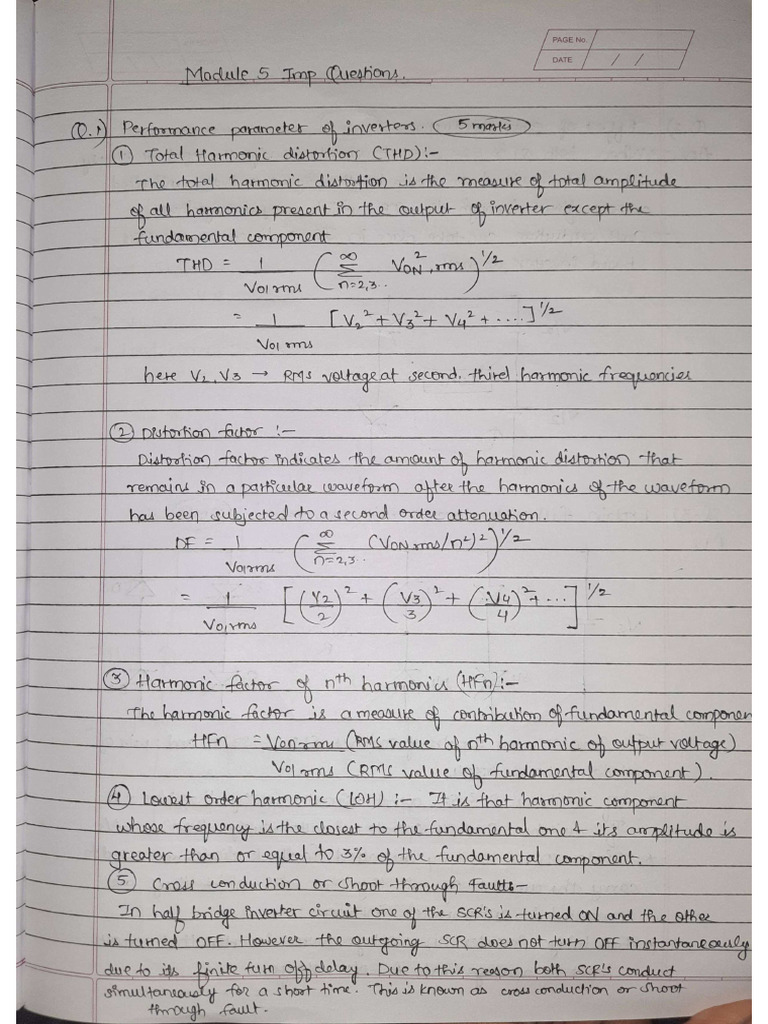 PAGE No.
DATE / /
Module 5 Imp Questions.
Q.1) Performance parameter of inverters. (5 marks)
① Total Harmonic distortion (THD):-
The total harmonic distortion is the measure of total amplitude
of all harmonics present in the output of inverter except the
fundamental component
THD = 1/Vo1rms (∞Σn=2,3.. VON²,rms)^1/2
= 1/Vo1rms [V2² + V3² + V4² + ....]^1/2
here V2, V3 → RMS voltage at second, third harmonic frequencies
② Distortion factor :-
Distortion factor indicates the amount of harmonic distortion that
remains in a particular waveform after the harmonics of the waveform
has been subjected to a second order attenuation.
DF = 1/Vo1rms (∞Σn=2,3.. (VONrms/n²)²)^1/2
= 1/Vo,rms [(V2/2)² + (V3/3)² + (V4/4)² + ...]^1/2
③ Harmonic factor of nth harmonics (HFn):-
The harmonic factor is a measure of contribution of fundamental componen
HFn = Vonrms (RMS value of nth harmonic of output voltage)
Vo1rms (RMS value of fundamental component).
④ Lowest order harmonic (LOH) :- It is that harmonic component
whose frequency is the closest to the fundamental one & its amplitude is
greater than or equal to 3% of the fundamental component.
⑤ Cross conduction or shoot through Faults-
In half bridge inverter circuit one of the SCR's is turned ON and the other
is turned OFF. However the outgoing SCR does not turn OFF instantaneously
due to its finite turn off delay. Due to this reason both SCR's conduct
simultaneously for a short time. This is known as cross conduction or shoot
through fault.